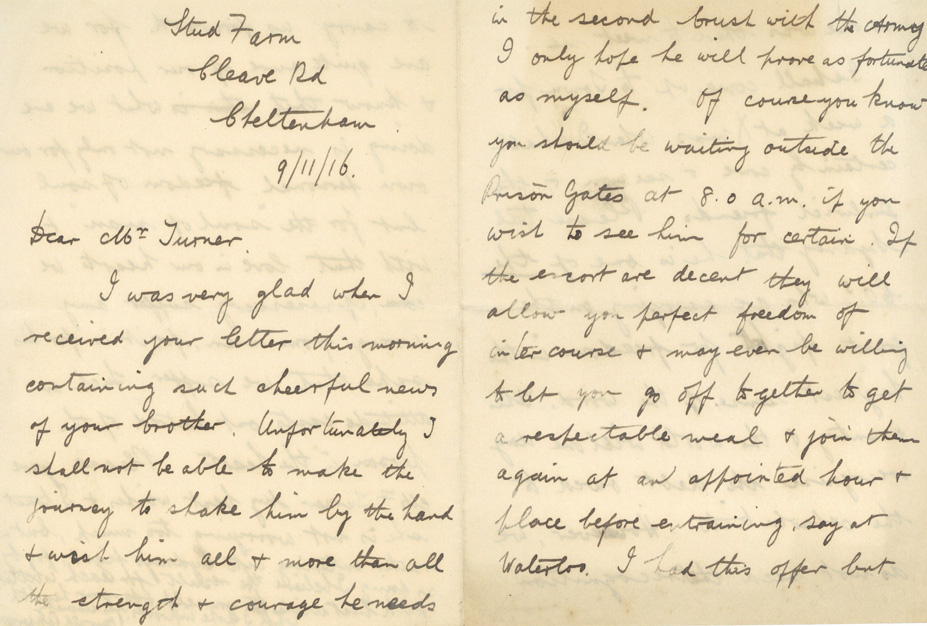 Stud Farm
Cleave Rd
Cheltenham.
9/11/16.
Dear Mr Turner
I was very glad when I
received your letter this morning
containing such cheerful news
of your brother. Unfortunately I
shall not be able to make the
journey to shake him by the hand
& wish him all & more than all
the strength & courage he needs
in the second brush with the Army
I only hope he will prove as fortunate
as myself. Of course you know
you should be waiting outside the
Prison Gates at 8.0 a.m. if you
wish to see him for certain. If
the escort are decent they will
allow you perfect freedom of
intercourse & may even be willing
to let you go off together to get
a respectable meal & join them
again at an appointed hour &
place before entraining, say at
Waterloo. I had this offer but